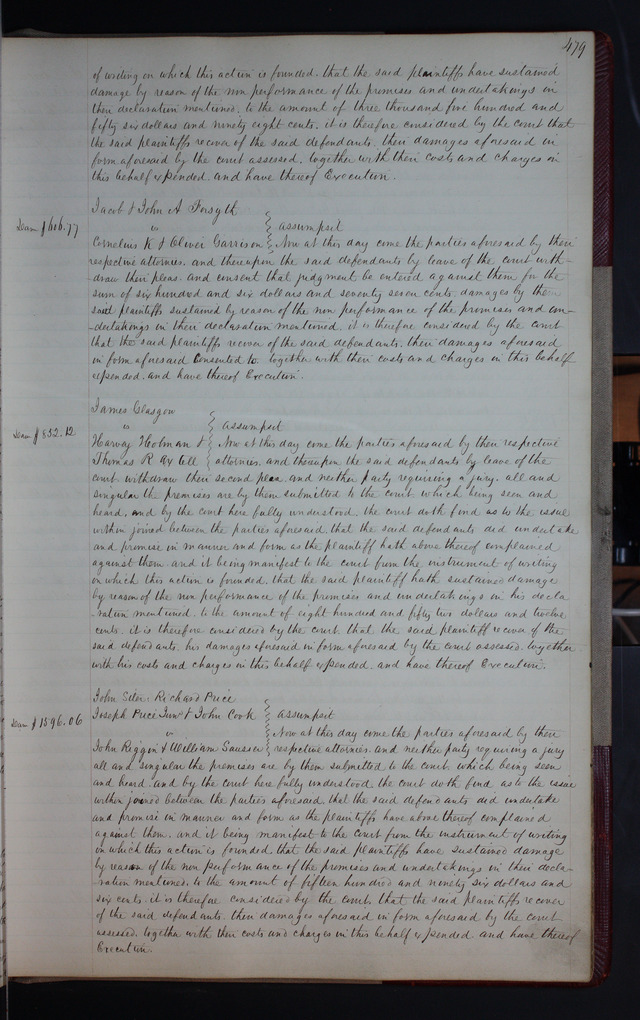 479
of writing on which this action is founded. that the said plaintiffs have sustained
damage by reason of the non performance of the premises and undertakings in
their declaration mentioned, to the amount of three thousand five hundred and
fifty six dollars and ninety eight cents. it is therefore considered by the court that
the said plaintiffs recover of the said defendants. their damages aforesaid in
form aforesaid by the court assessed. together with their costs and charges in
this behalf expended. and have thereof Execution.
Jacob & John A Forsyth
Dam $606.77
vs
assumpsit
Cornelius K & Oliver Garrison Now at this day come the parties aforesaid by their
respective attornies. and thereupon the said defendants by leave of the court with-
draw their pleas. and consent that judgment be entered against them for the
sum of six hundred and six dollars and seventy seven cents. damages by the
said plaintiffs sustained by reason of the non performance of the promises and un-
-dertakings in their declaration mentioned. it is therefore considered by the court
that the said plaintiffs recover of the said defendants. their damages aforesaid
in form aforesaid consented to. together with their costs and charges in this behalf
expended. and have thereof Execution.
James Glasgow
Dam $852.12
vs
assumpsit
Harvey Holman & Now at this day come the parties aforesaid by their respective
Thomas R Axtell attornies. and thereupon the said defendants by leave of the
court. withdraw their second plea and neither party requiring a jury. all and
singular the premises are by them submitted to the court. which being seen and
heard, and by the court here fully understood. the court doth find as to the issue
within joined between the parties aforesaid that the said defendants did undertake
and promise in manner and form as the plaintiff hath above thereof complained
against them. and it being manifest to the court from the instrument of writing
on which this action is founded. that the said plaintiff hath sustained damage
by reason of the non performance of the premises and undertakings in his decla
-ration mentioned. to the amount of eight hundred and fifty two dollars and twelve
cents. it is therefore considered by the court that the said plaintiff recover of the
said defendants. his damages aforesaid in form aforesaid by the court assessed. together
with his costs and charges in this behalf expended. and have thereof Execution.
John Siter. Richard Price
Dam $1596.06
Joseph Price Junr & John Cook assumpsit
vs
Now at this day come the parties aforesaid by their
John Riggin & William Sausser respective attornies. and neither party requiring a jury
all and singular the premises are by them submitted to the court. which being seen
and heard. and by the court here fully understood. the court doth find as to the issue
within joined between the parties aforesaid that the said defendants did undertake
and promise in manner and form as the plaintiffs have above thereof complained
against them. and it being manifest to the court from the instrument of writing
on which this action is founded. that the said plaintiffs have sustained damage
by reason of the non performance of the promises and undertakings in their decla-
-ration mentioned. to the amount of fifteen hundred and ninety six dollars and
six cents. it is therefore considered by the court. that the said plaintiffs recover
of the said defendants. their damages aforesaid in form aforesaid by the court
assessed. together with their costs and charges in this behalf expended. and have thereof
Execution.